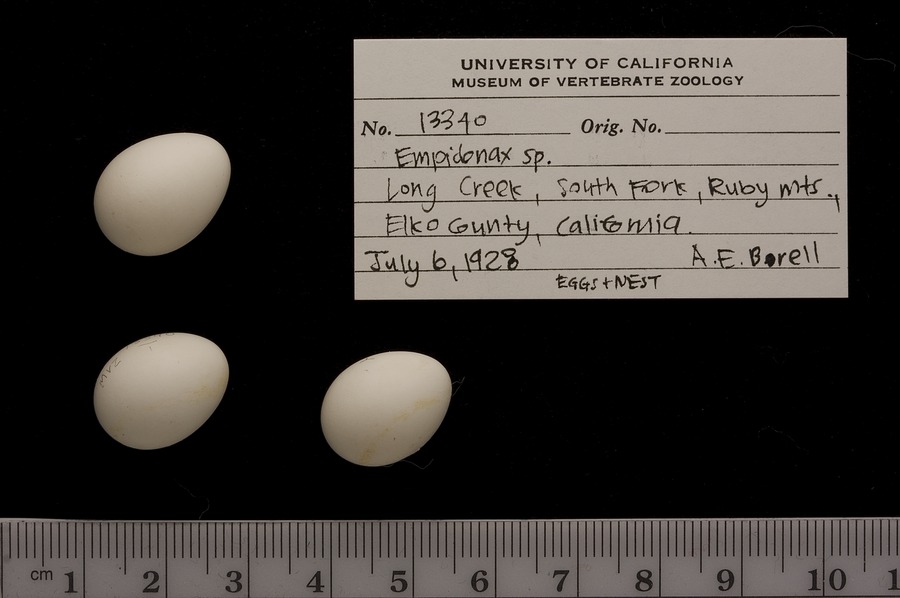 UNIVERSITY OF CALIFORNIA
MUSEUM OF VERTEBRATE ZOOLOGY
No. 13340 Orig. No.
Empidonax sp.
Long Creek, South Fork, Ruby Mts.,
Elko County, California.
July 6, 1928 A.E. Borell
EGGS + NEST
MVZ
cm 1 2 3 4 5 6 7 8 9 10 1